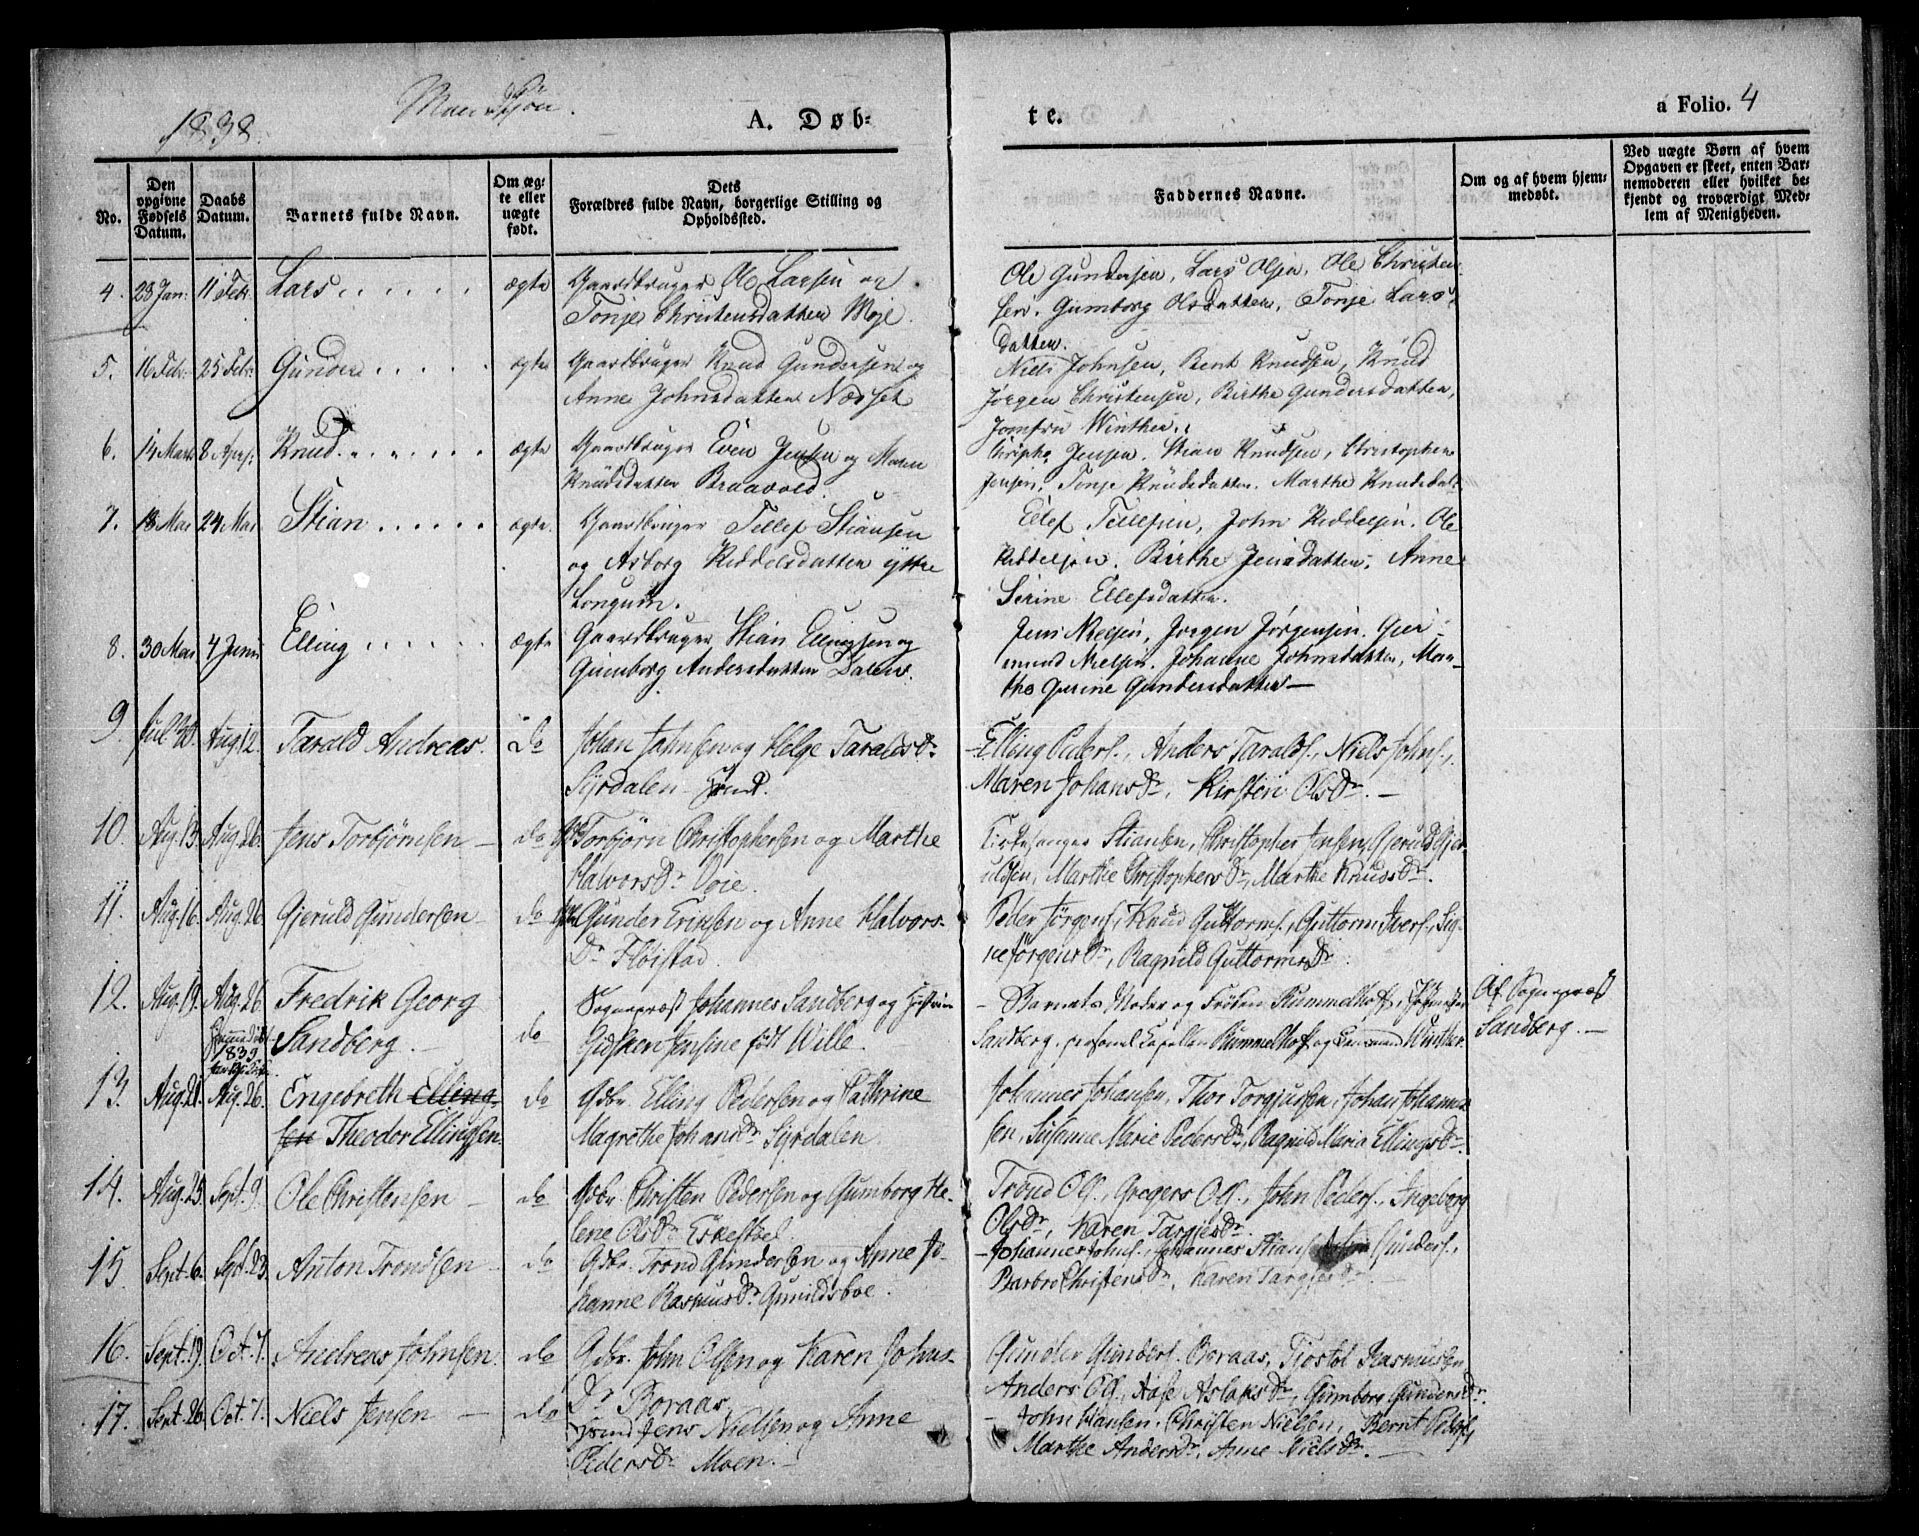 1838.
A. Døb-
te.
a Folio. 4
No.
Den opgivne Fødsels Datum.
Daabs Datum.
Barnets fulde Navn.
Om ægte eller uægte født.
Dets
Forældres fulde Navn, borgerlige Stilling og
Opholdssted.
Faddernes Navne.
Om og af hvem hjem-
medøbt.
Ved uægte Børn af hvem
Opgaven er skeet, enten Bar-
nemoderen eller hvilket be-
kjendt og troværdigt Med-
lem af Menigheden.
4. 28 Jan: 11 Feb. Lars ægte Gaardbruger Ole Larsen og
Tonje Christensdatter Moje.
Ole Gundersen, Lars Olsen, Ole Christen
sen, Gumborg Olsdatter, Tonje Lars
datter.
5. 16 Febr: 25 Febr: Gunder ægte Gaardbruger Knud Gundersen og
Anne Johnsdatter Næsset
Niels Johnsen, Bent Knudsen, Knud
Jørgen Christensen, Birthe Gundersdatter,
Jomfru Winther.
6. 14 Mart 8 Apr: Knud ægte Gaardbruger Even Jensen og Maren
Knudsdatter Braavold.
Jensen. Stian Knudsen, Christopher
Jensen, Tonje Knudsdatter. Marthe Knudsdatt
7. 18 Mar 24 Mar. Stian ægte. Gaardbruger Tellef Stiansen
og Asborg Kiddelsdatter yttre
Longum.
Ellef Tellefsen, John Kiddelsen. Ole
Kiddelsen. Birthe Jensdatter, Anne
Serine Ellefsdatter.
8. 30 Mai 4 Juni Elling ægte Gaardbruger Stian Ellingsen og
Gumborg Andersdatter Dalen.
Jens Nielsen, Jørgen Jørgensen. Gier-
mund Nielsen. Johanne Johnsdatter, Mar-
the Gurine Gundersdatter—
9. Jul 30. Aug. 12. Tarald Andreas. Do Johan Johnsen og Helge Taralds Dr.
Syrdalen
Elling Peders., Anders Taralds., Niels Johns.,
Maren Johans Dr, Kirsten Ols Dr. —
10. Aug. 13. Aug. 26. Jens Torbjørnsen — do Torbjørn Christophersen og Marthe
Halvors Dr Voie.
Stiansen, Christopher Jensen, Gjeruld Gjer-
uldsen, Marthe Christophers Dr, Marthe Knuds Dr.
11. Aug. 16. Aug. 26 Gjeruld Gundersen do Gunder Eriksen og Anne Halvors-
Dr Fløistad.
Peder Jørgens., Knud Guttorms., Guttorm Ivers., Sig-
ne Jørgens Dr, Ragnild Guttorms Dr.
12. Aug. 19. Aug. 26 Fredrik Georg
Sandberg. — do Sognepræst Johannes Sandberg og Hustrue
Gidsken Jensine født Wille.
— Barnets Moder og Frøken Rummelhof,
Sandberg, personel Capellan Rummelhof og Winther.
Af Sognepræst
Sandberg. —
1839
13. Aug. 21. Aug. 26. Engebreth Elling-
sen Theodor Ellingsen do Gdbr. Elling Pedersen og Cathrine
Magrethe Johans Dr Syrdalen.
Johannes Johansen, Thor Torgjusen, Johan Johanne-
sen, Susanne Marie Peders Dr, Ragnild Maria Ellings Dr
14. Aug. 25. Sept. 9. Ole Christensen — do Gdbr. Christen Pedersen og Gumborg He-
lene Ols Dr Eskestøel.
Trond Ols., Gregers Ols., John Peders., Ingeborg
Ols Dr, Karen Targjes Dr.
15. Sept. 6. Sept. 23. Anton Trondsen — do Gdbr. Trond Gundersen og Anne Jo-
hanne Rasmus Dr Gunildsboe.
— Johannes Johns., Johannes Stians., Gunders.,
Barbro Christens Dr, Karen Targjes Dr. —
16. Sept. 19. Oct. 7. Andreas Johnsen. do Gdbr. John Olsen og Karen Johns-
Dr Boraas
Gunder Gunders. Boraas, Tjostol Rasmussen
Anders Ols., Aase Aslaks Dr, Gumborg Gunders Dr.
17. Sept. 26. Oct. 7. Niels Jensen — do Jens Nielsen og Anne
Peders Dr Moen. —
— John Hansen, Christen Nielsen, Bernt Peders.,
Marthe Anders Dr, Anne Niels Dr. —